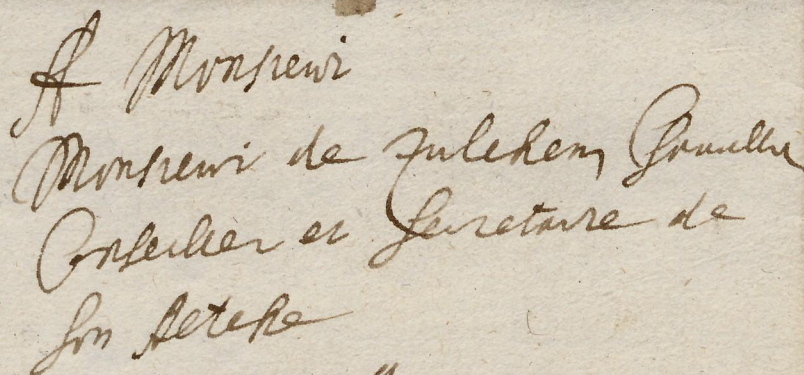 A Monsieur
Monsieur de Zulichem Chevallier
Conseiller et Secretaire de
Son Altesse